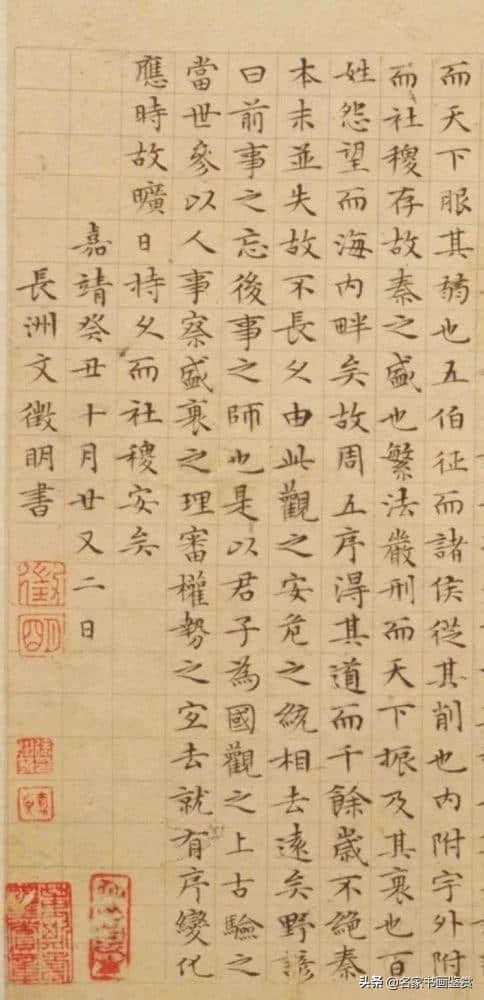 而天下服其弱也五伯征而諸侯從其削也内附宇外附
而社稷存故秦之盛也繁法嚴刑而天下振及其衰也百
姓怨望而海内畔矣故周五序得其道而千餘歲不絶秦
本末並失故不長久由此觀之安危之統相去遠矣野諺
曰前事之忘後事之師也是以君子為國觀之上古驗之
當世參以人事察盛衰之理審權勢之宜去就有序變化
應時故曠日持久而社稷安矣
嘉靖癸丑十月廿又二日
長洲文徵明書
徵明
头条 @名家书画鉴赏